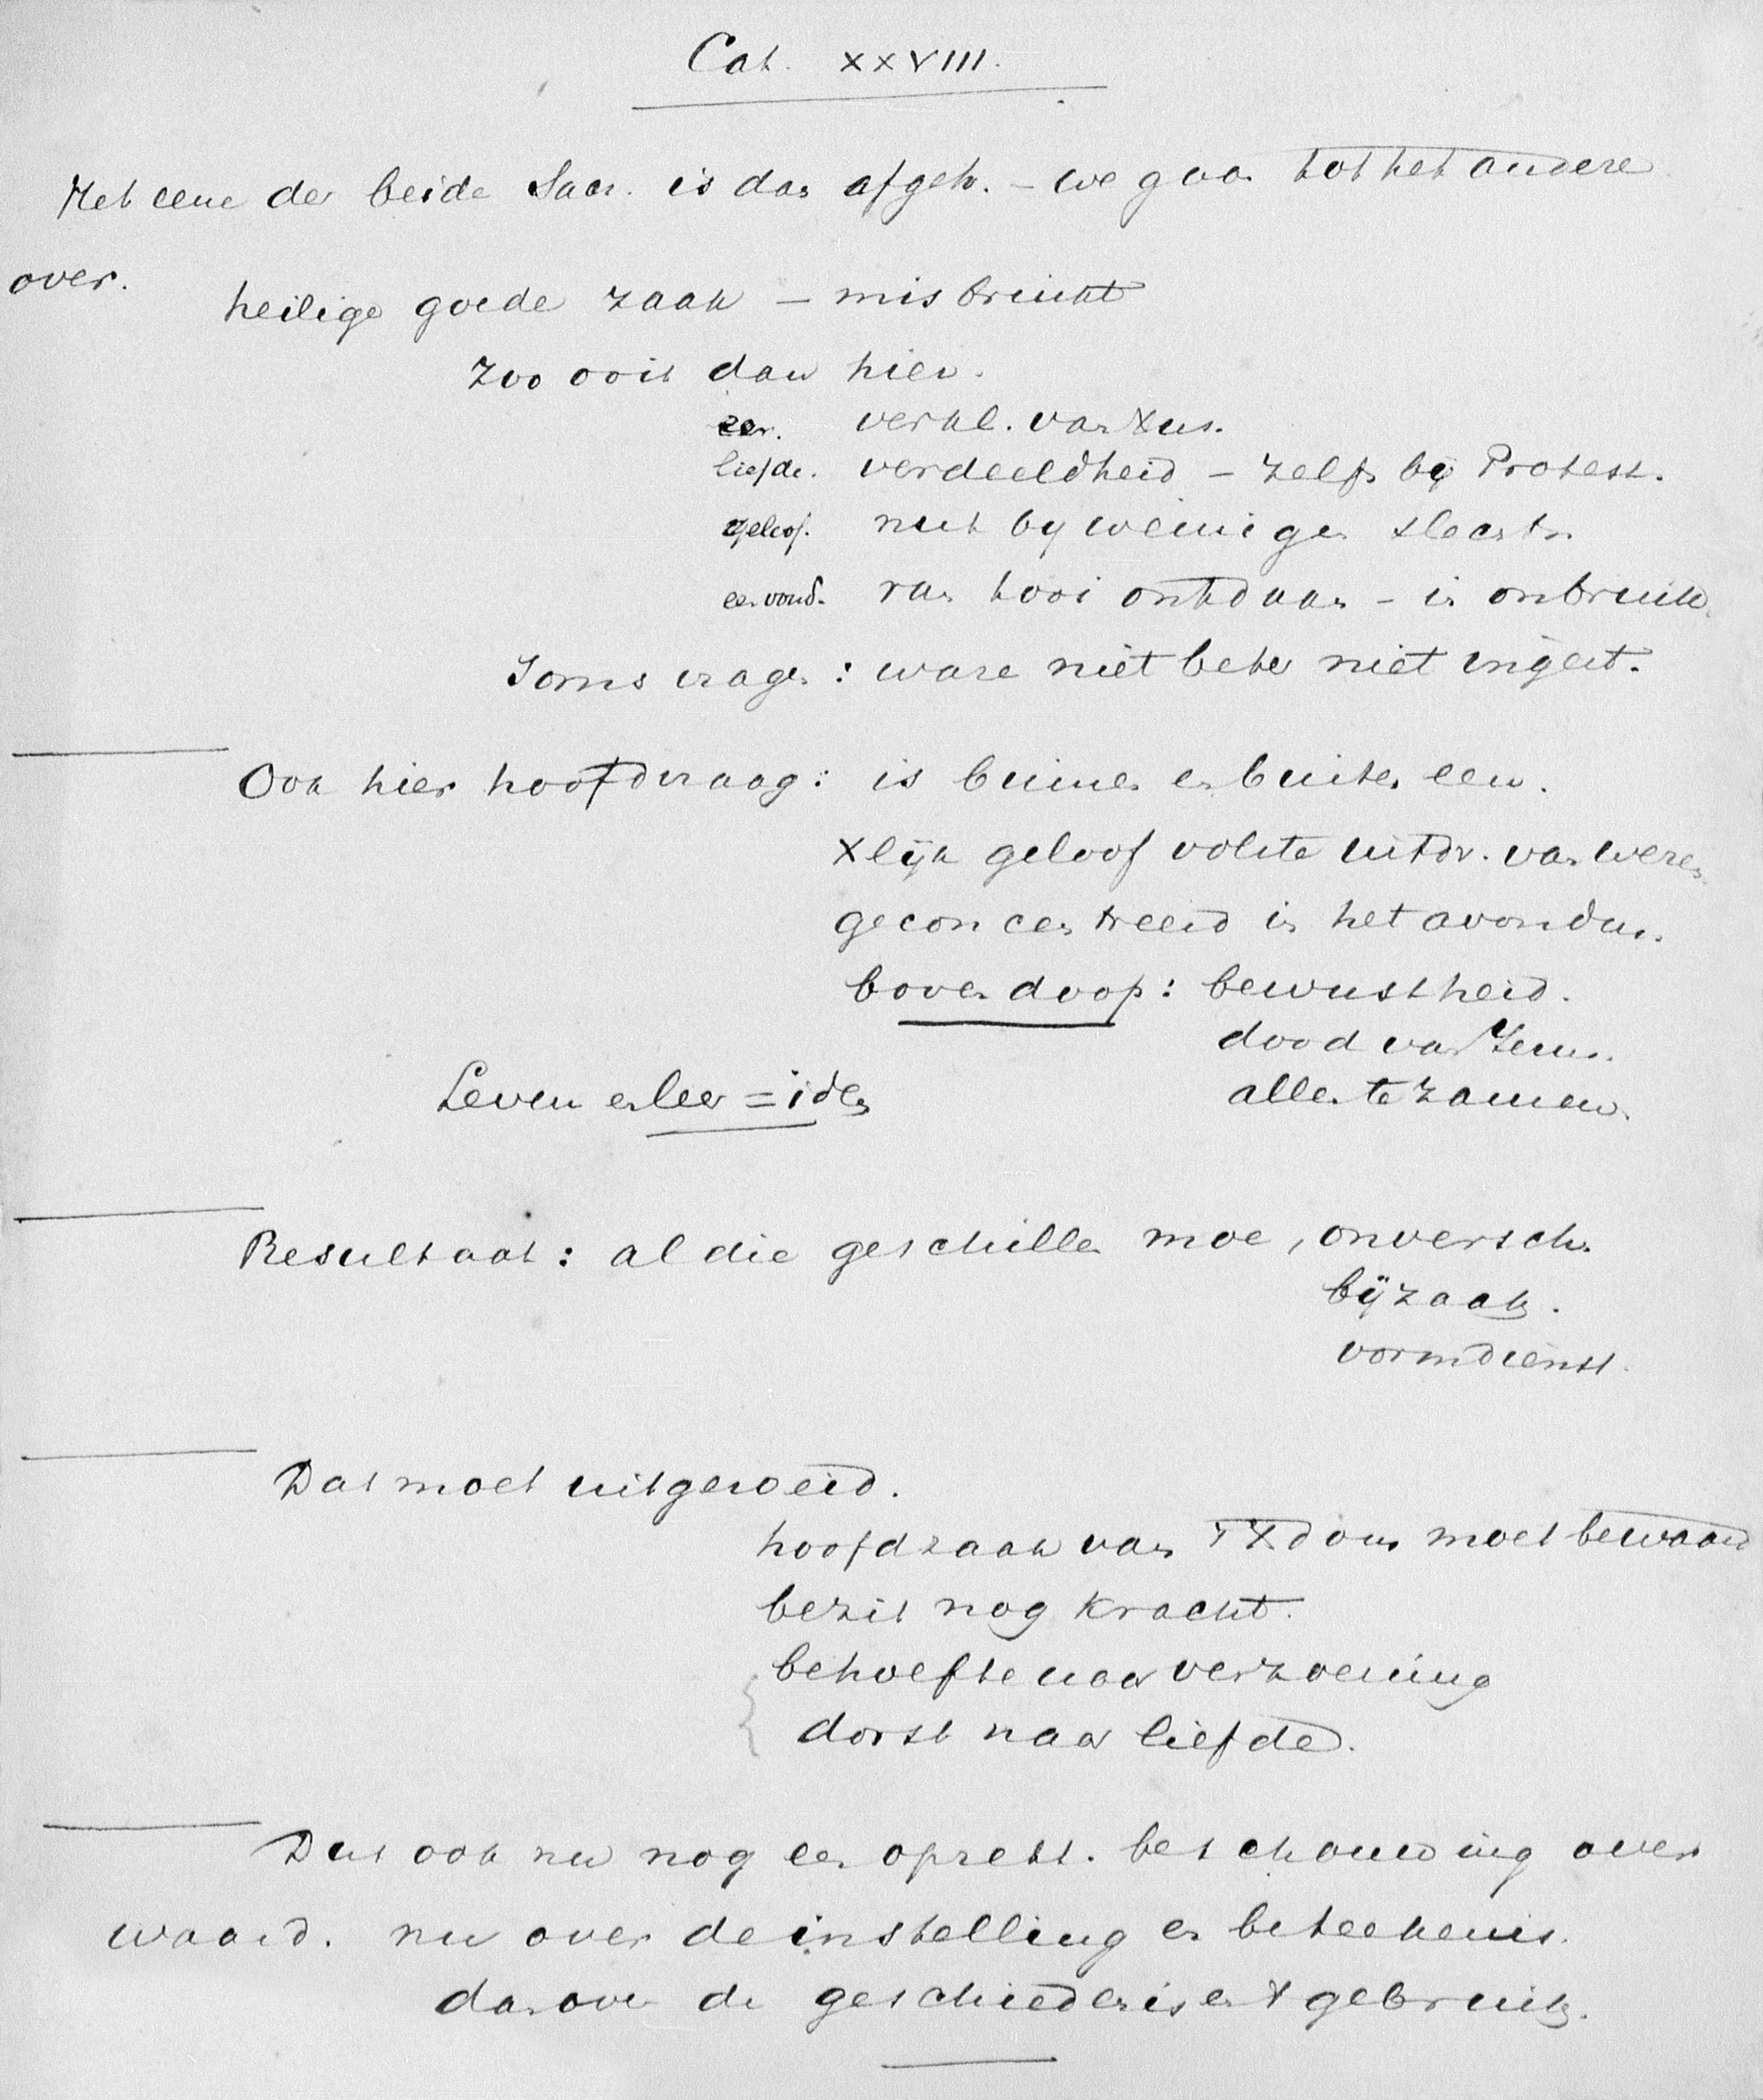 Cat. XXVIII.
Het eene der beide Sacr. is dan afgeh. – we gaan tot het andere
over.
heilige goede zaak – misbruikt
Zoo ooit dan hier.
eer. verkl. van Xus.
liefde. verdeeldheid – zelfs bij Protest.
geloof. nut bij weinigen slechts.
eenvoud. van tooi ontdaan – is onbruik.
Soms vragen: ware niet beter niet ingest.
Ook hier hoofdvraag: is binnen en buiten een.
Xlijk geloof volste uitdr. van weren
geconcentreerd in het avondm.
boven doop: bewustheid.
dood van Jezus.
allen te zamen.
Leven en leer = iden
Resultaat: al die geschillen moe, onversch.
bijzaak.
vormdienst.
Dat moet uitgeroeid.
hoofdzaak van 't Xdom moet bewaard
bezit nog kracht.
behoefte naar verzoening
dorst naar liefde.
Dus ook nu nog een oprecht. beschouwing over
waard. nu over de instelling en beteekenis.
dan over de geschiedenis en 't gebruik.